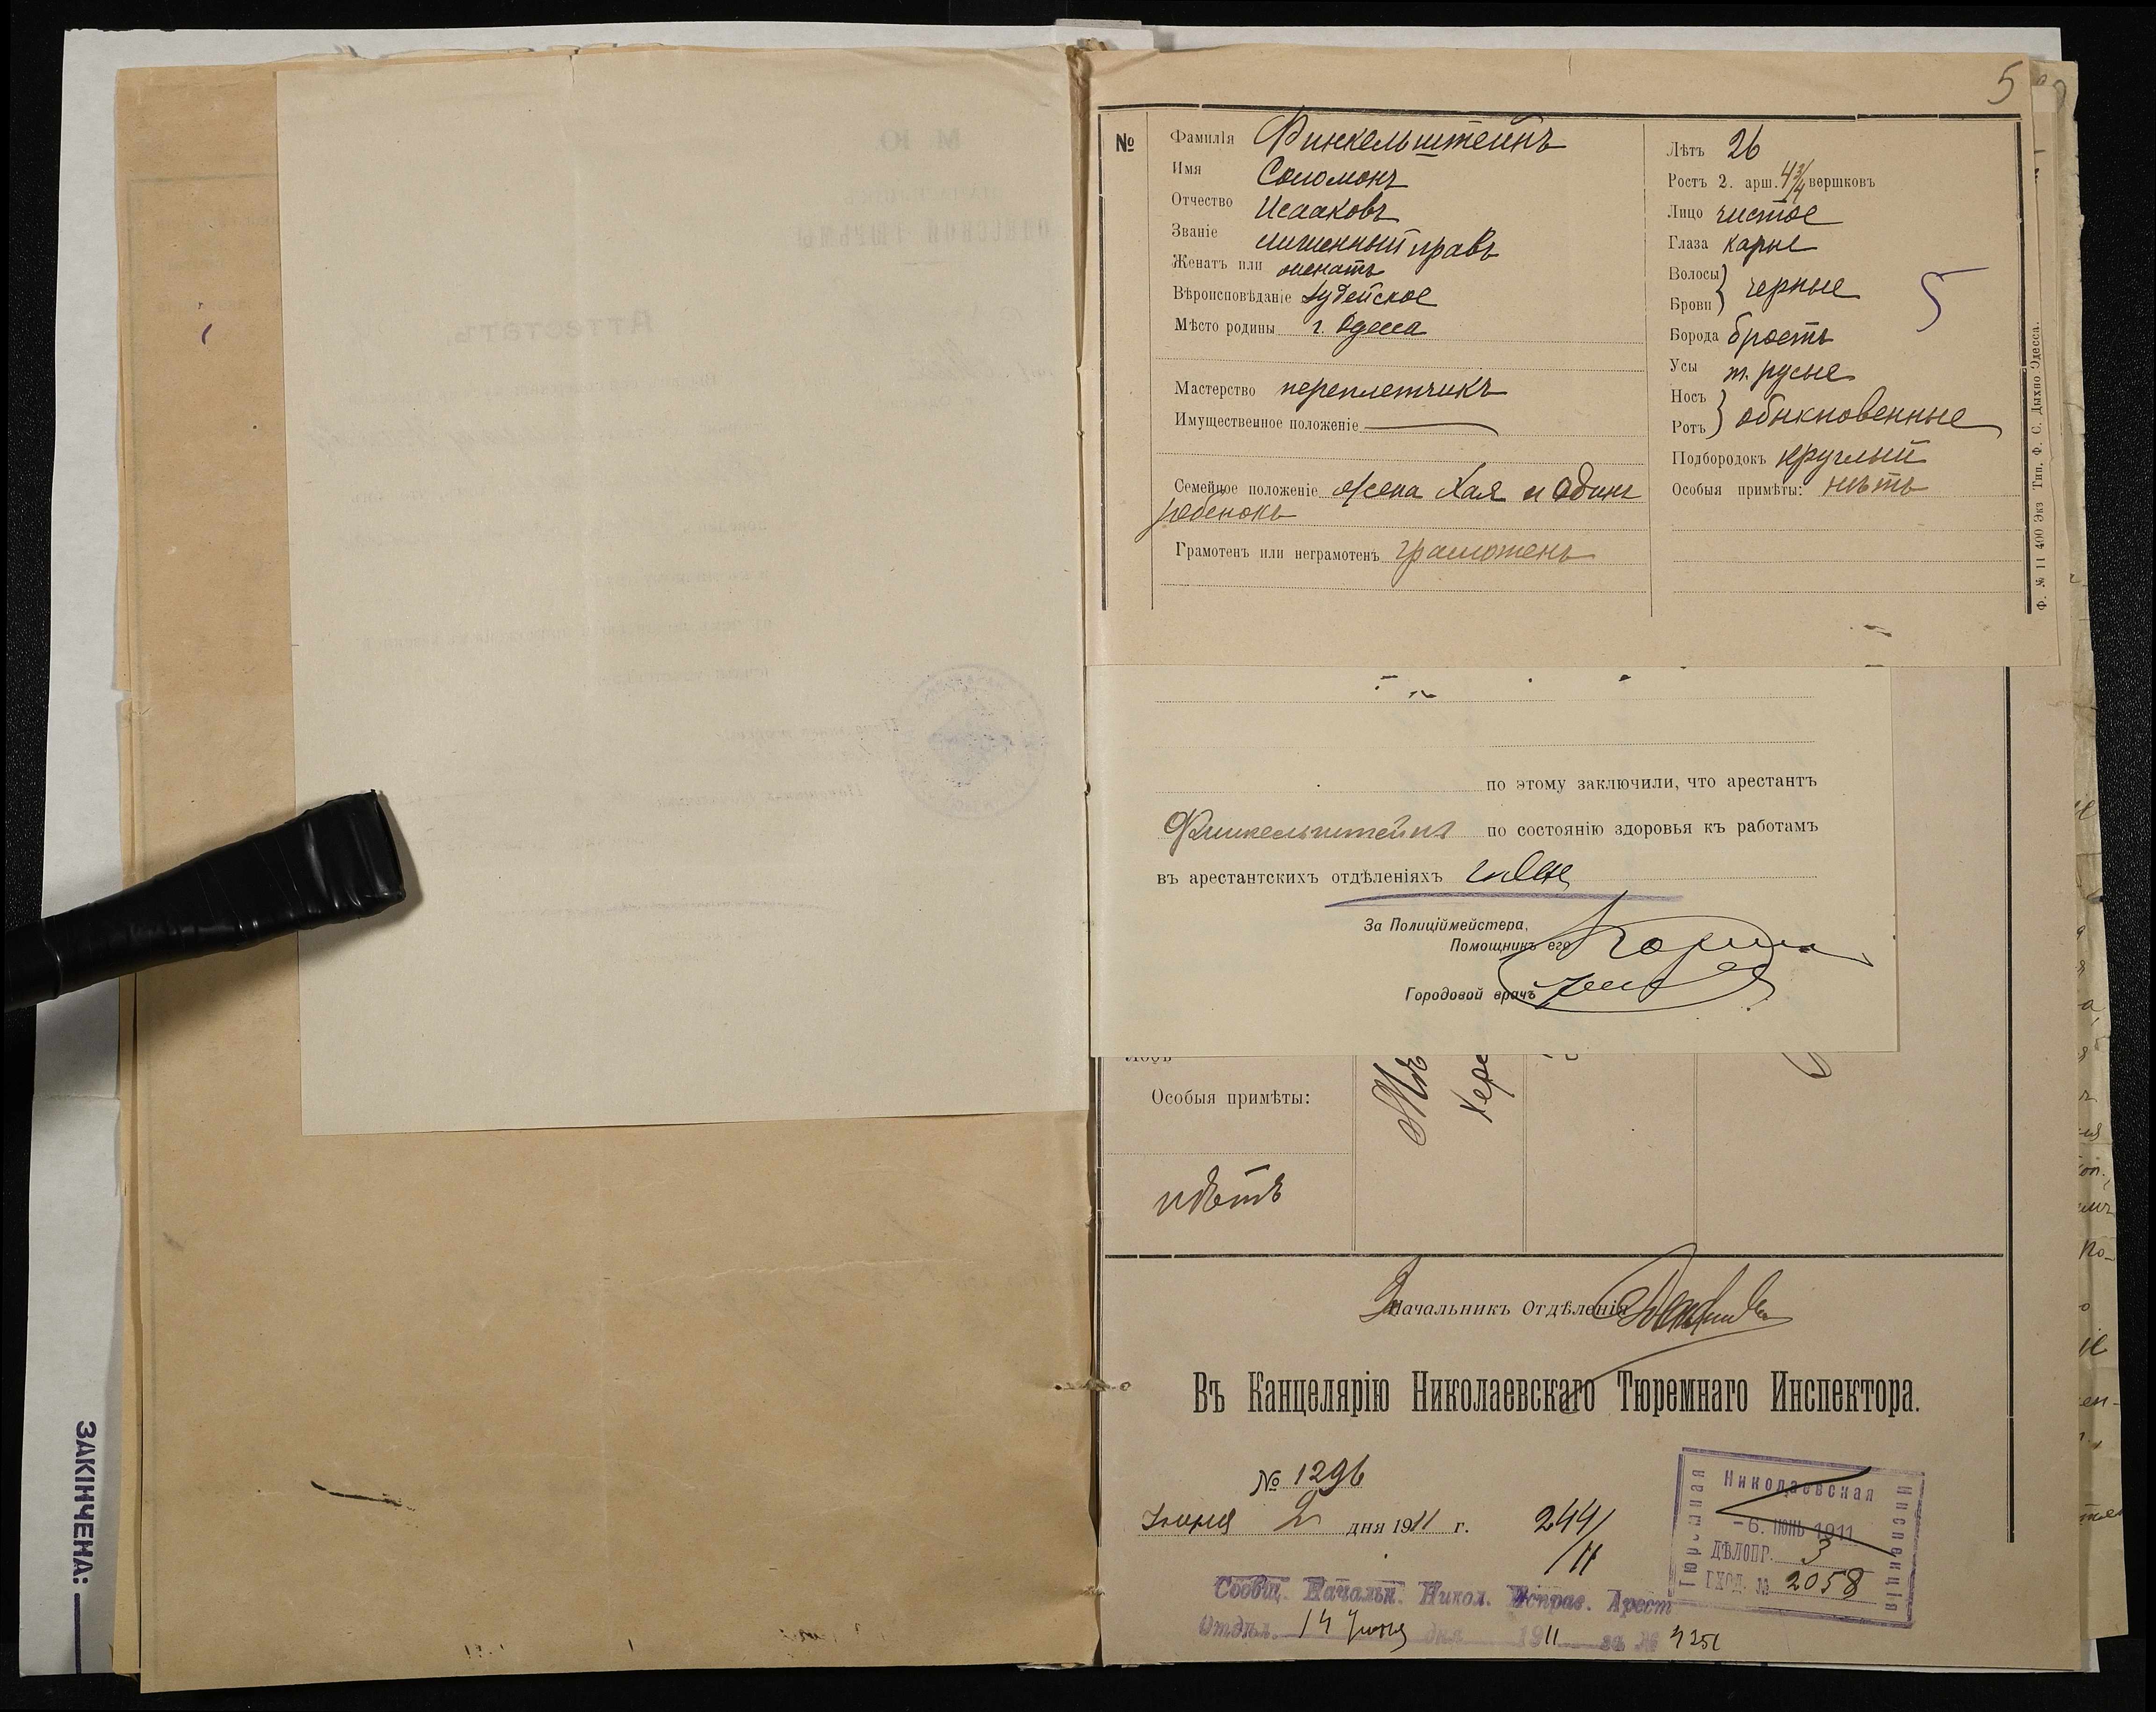 5
№
Фамилія Финкельштейнъ
Имя Соломонъ
Отчество Исааковъ
Званіе лишенный правъ
Женатъ или женатъ
Вѣроисповѣданіе Іудейское
Мѣсто родины г. Одесса
Мастерство переплетчикъ
Имущественное положеніе
Семейное положеніе жена Хая и один
ребенокъ
Грамотенъ или неграмотенъ грамотенъ
Лѣтъ 26
Ростъ 2. арш. 4 3/4 вершковъ
Лицо чистое
Глаза карые
Волосы
Брови } черные
Борода бреетъ
Усы т. русые
Носъ
Ротъ } обыкновенные
Подбородокъ круглый
Особыя примѣты: нѣтъ
5
Ф. № 11 400 Экз Тип. Ф. С. Дыхно Одесса.
по этому заключили, что арестантъ
Финкельштейнъ по состоянію здоровья къ работамъ
въ арестантскихъ отдѣленіяхъ годен
За Полиціймейстера,
Помощникъ его
Городовой врачъ
Особыя примѣты:
нѣтъ
Начальникъ Отдѣленія
Въ Канцелярію Николаевскаго Тюремнаго Инспектора.
№ 1296
Іюня 2 дня 1911 г.
244/11
Николаевская
Тюремная
Инспекція
-6. ІЮНЬ 1911
ДѢЛОПР. 3
ВХОД. № 2058
Сообщ. Начальн. Никол. Исправ. Арест
Отдѣл. 14 Іюня дня 1911 за № 4251
ЗАКІНЧЕНА:
М Ю
Аттестатъ